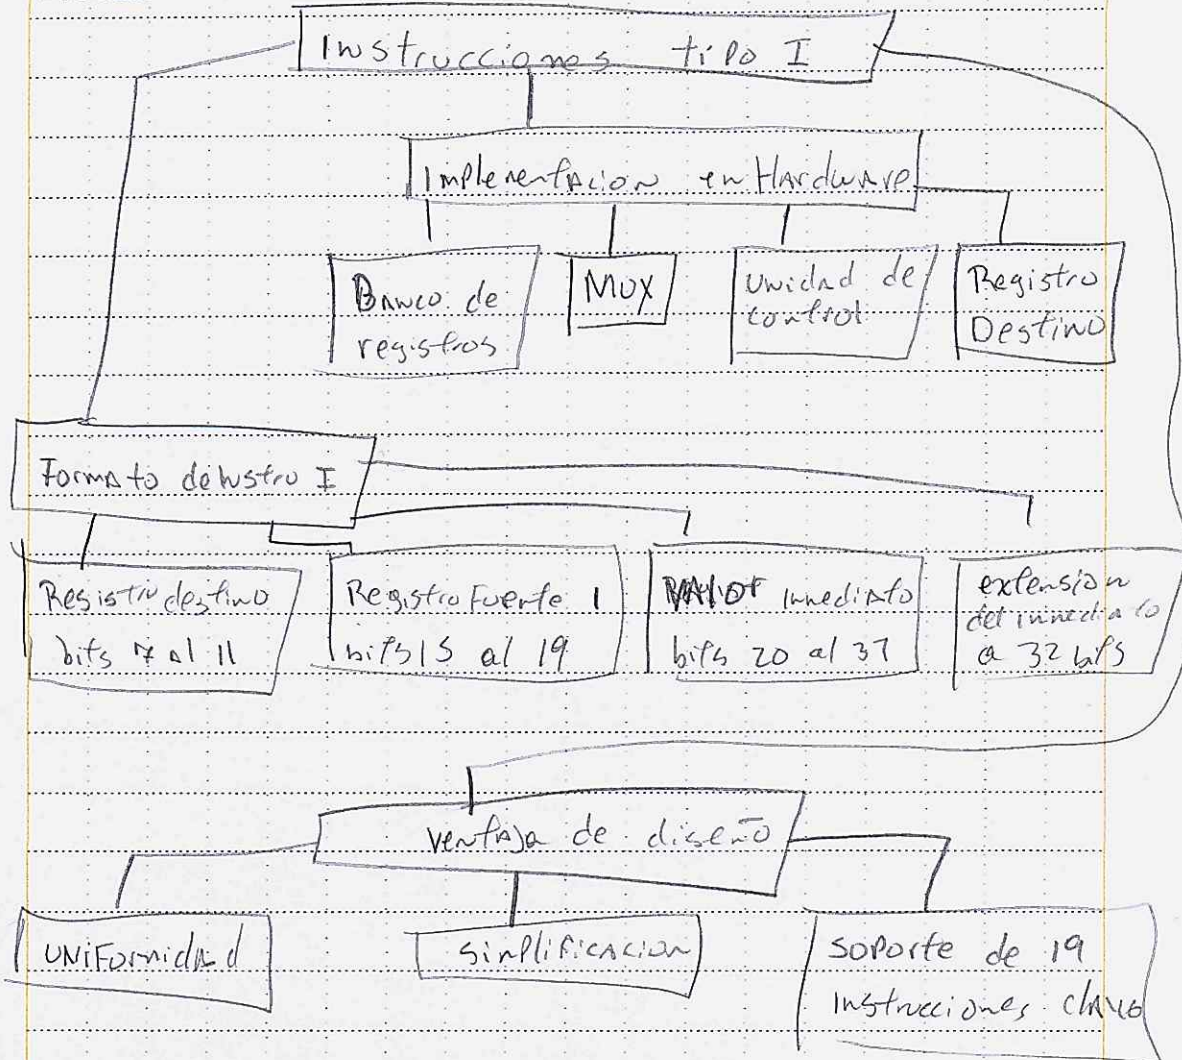 Instrucciones tipo I
Implementacion en Hardware
Banco de
registros
MUX
Unidad de
control
Registro
Destino
Formato de Instru I
Registro destino
bits 7 al 11
Registro Fuente 1
bits 15 al 19
Valor inmediato
bits 20 al 31
extension
del inmediato
a 32 bits
ventaja de diseño
UNiFormidad
simplificacion
soporte de 19
instrucciones clave